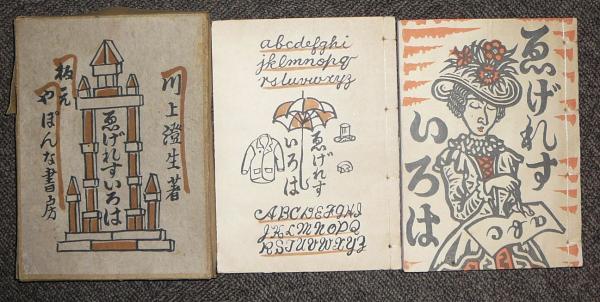 川上澄生著
ゑげれすいろは
板元
やぽんな書房
abcdefghi
jklmnopqr
rstuvwxyz
ゑげれす
いろは
ABCDEFGHI
JKLMNOPQ
RSTUVWXYZ
ゑげれす
いろは